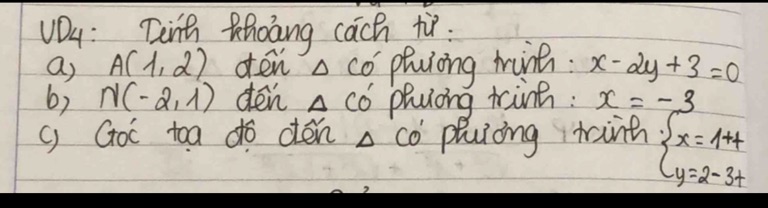 VD4: Tính khoảng cách từ:
a) A(1,2) đến Δ có phương trình: x-2y+3=0
b) N(-2,1) đến Δ có phương trình: x = -3
c) Gốc toạ độ đến Δ có phương trình: {x=1+t
{y=2-3t